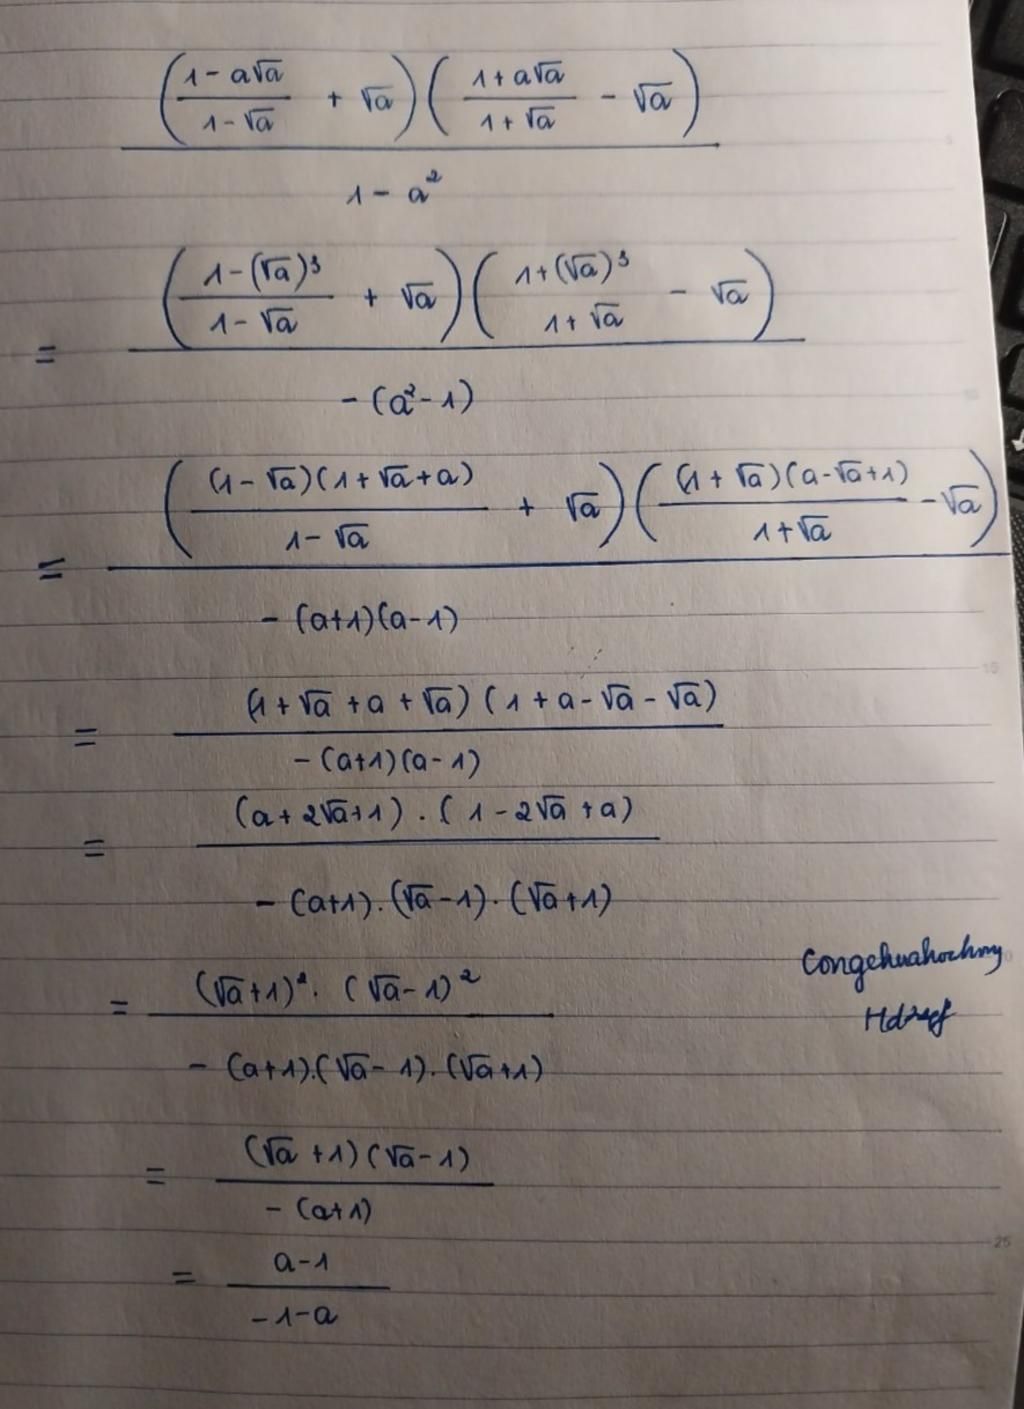 (1 - a√a / 1 - √a + √a)(1 + a√a / 1 + √a - √a)
1 - a²
= (1 - (√a)³ / 1 - √a + √a)(1 + (√a)³ / 1 + √a - √a)
- (a² - 1)
= ((1 - √a)(1 + √a + a) / 1 - √a + √a)((1 + √a)(a - √a + 1) / 1 + √a - √a)
- (a+1)(a - 1)
= (1 + √a + a + √a)(1 + a - √a - √a)
- (a+1)(a - 1)
= (a + 2√a + 1) . (1 - 2√a + a)
- (a+1) . (√a - 1) . (√a + 1)
= (√a + 1)² . (√a - 1)²
- (a+1).(√a - 1).(√a + 1)
= (√a + 1)(√a - 1)
- (a+1)
= a - 1
- 1 - a